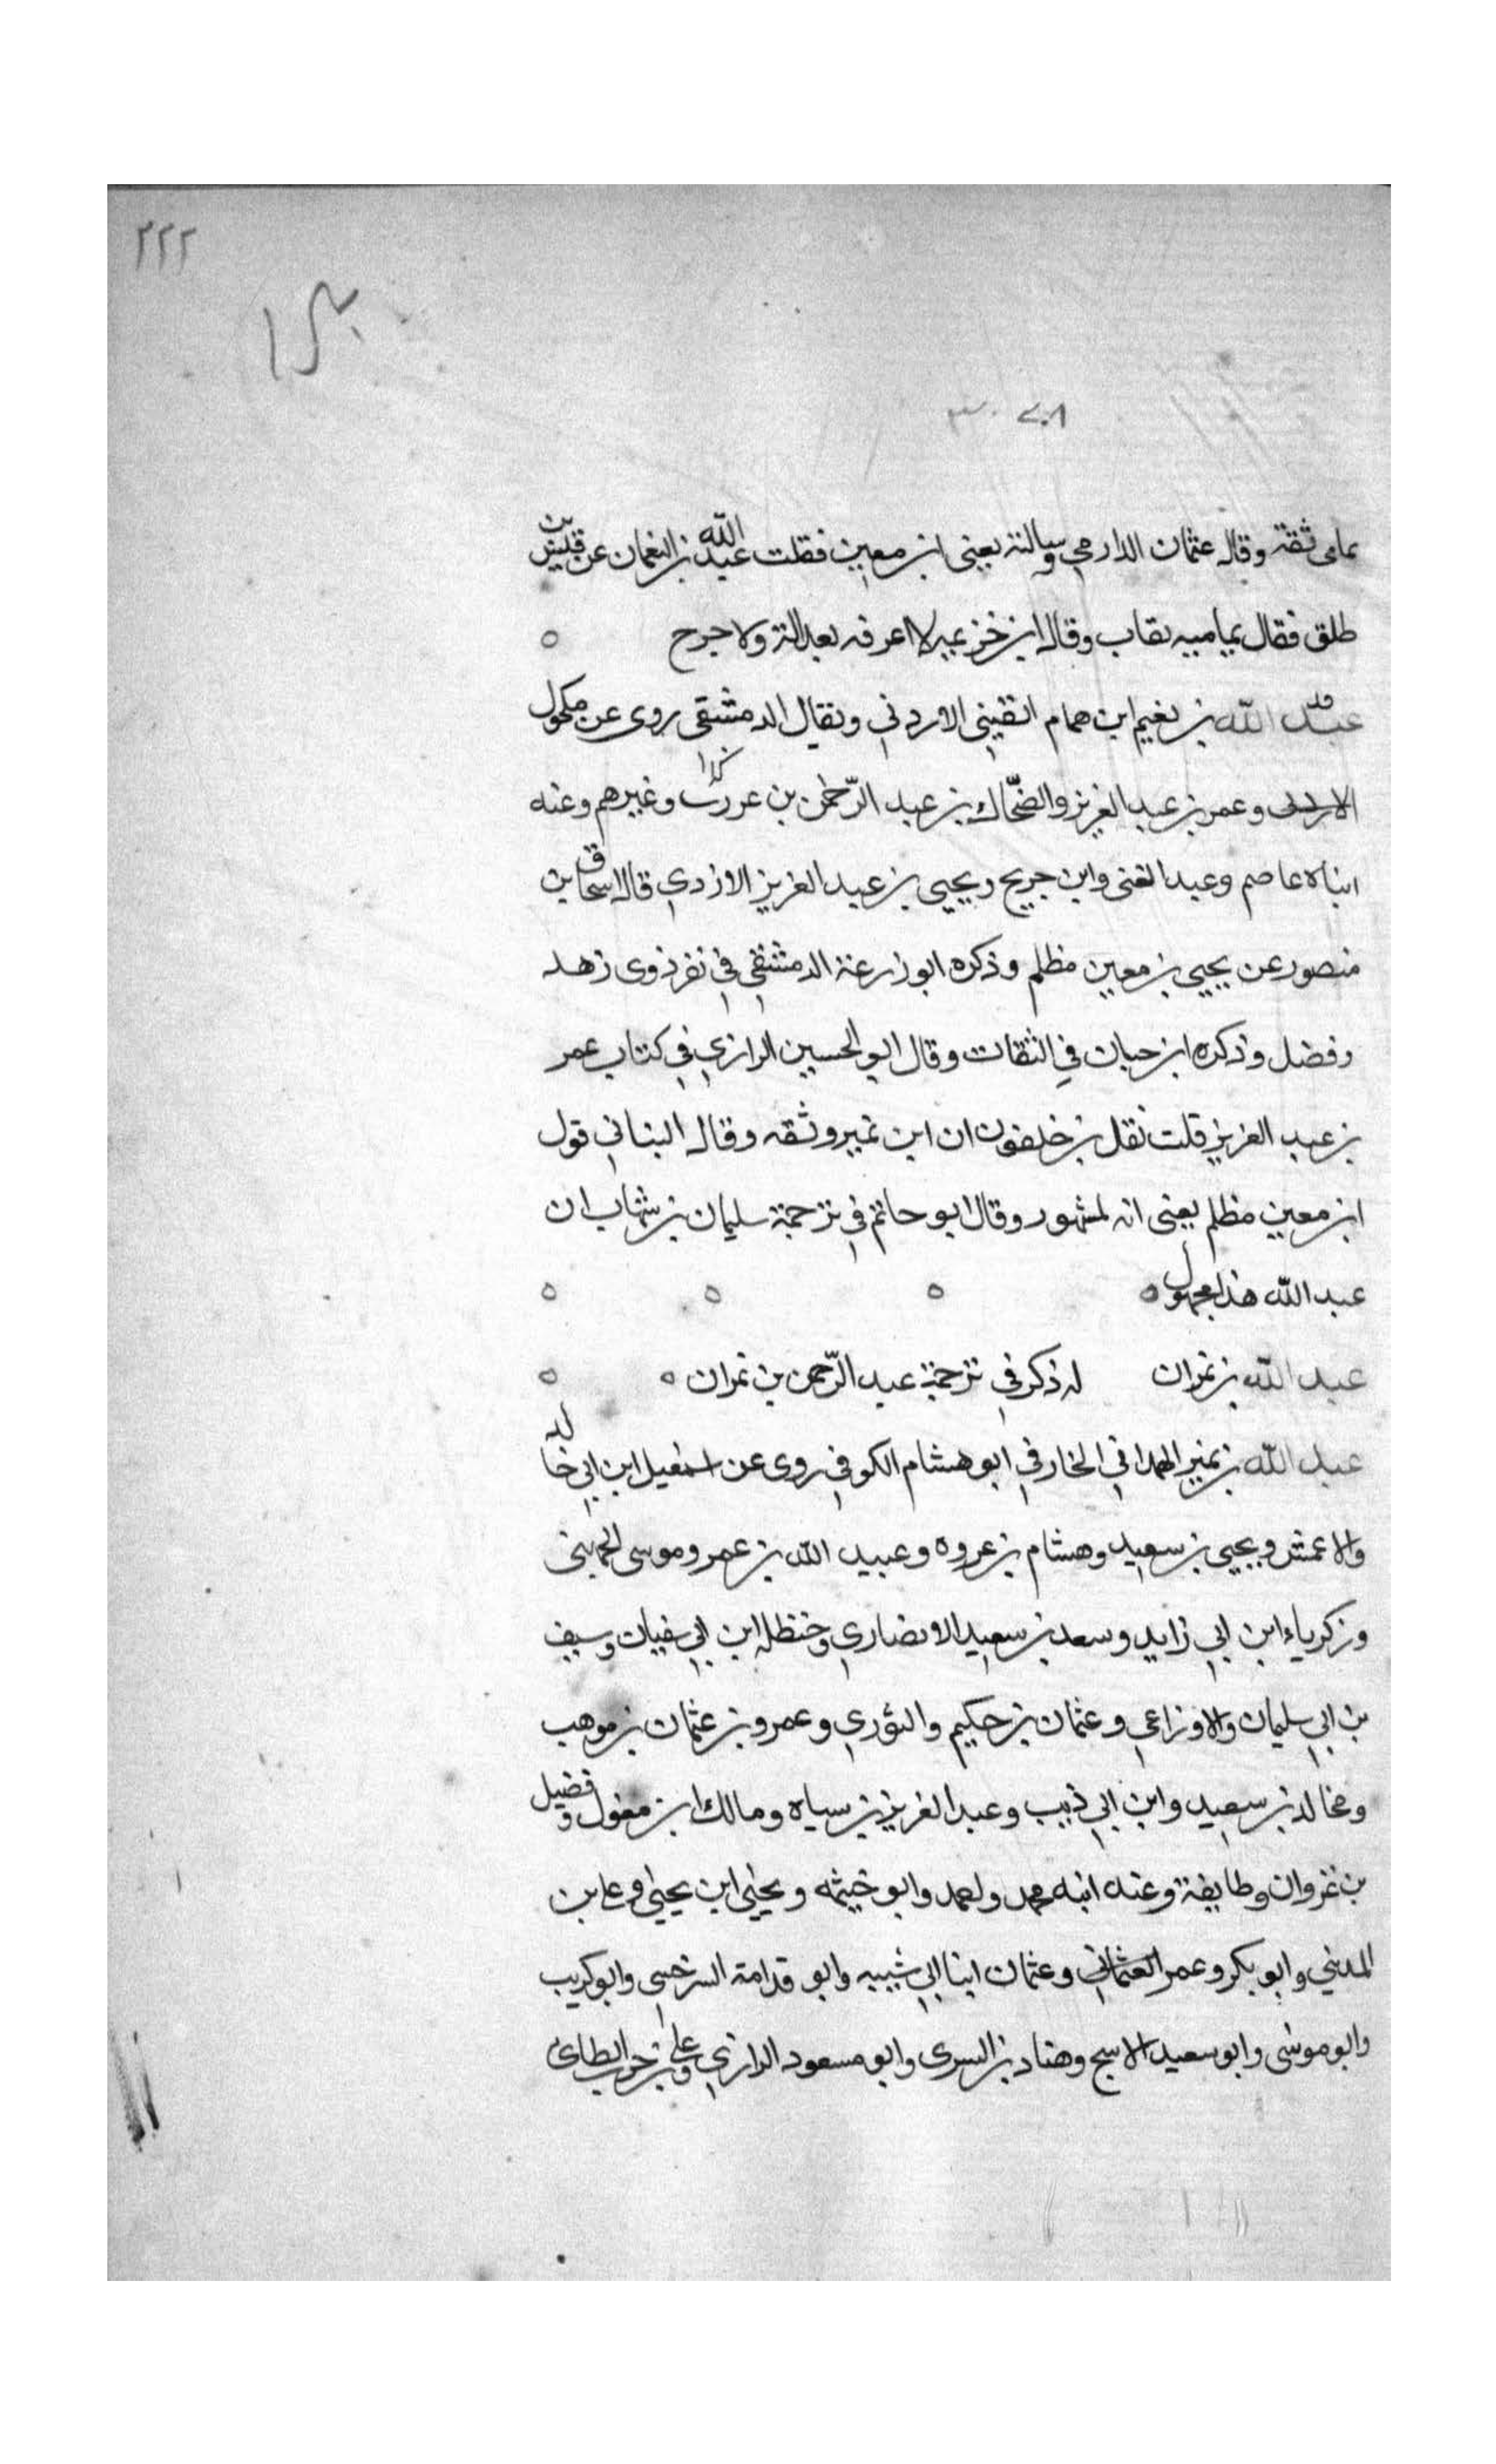 ٢٢٢
يمامى ثقة وقال عثمان الدارمي وسالته يعنى ابن معين فقلت عبد الله بن النعمان عن قيس بن
طلق فقال يماميه ثقاب وقال ابن خزيميه لا اعرفه بعدالة ولا جرح ٥
عبد الله بن نعيم ابن همام القينى الاردني ويقال الدمشقى روى عن مكحول
الاردنى وعمر بن عبد العزيز والضحاك بن عبد الرحمن بن عرزب وغيرهم وعنه
ابناه عاصم وعبد الغنى وابن جريج ويحيى بن عبد العزيز الازدي قال اسحاق بن
منصور عن يحيى بن معين مظلم وذكره ابو زرعة الدمشقي في نفر ذوى زهد
وفضل وذكره ابن حبان في الثقات وقال ابو الحسين الرازي في كتاب عمر
بن عبد العزيز قلت نقل بن خلفون ان ابن نمير وثقه وقال البناني قول
ابن معين مظلم يعنى انه لمشهور وقال ابو حاتم في ترجمة سليمان بن شهاب ان
عبد الله هذا مجهول ٥ ٥ ٥ ٥
عبد الله بن نمران له ذكر في ترجمة عبد الرحمن بن نمران ٥ ٥
عبد الله بن نمير الهمداني الخارفي ابو هشام الكوفي روى عن اسمعيل ابن ابي خالد
والاعمش ويحيى بن سعيد وهشام بن عروه وعبيد الله بن عمر وموسى الجهنى
وزكرياء ابن ابي زايد وسعد بن سعيد الانصاري وحنظله ابن ابي سفيان وسيف
بن ابي سليمان والاوزاعي وعثمان بن حكيم والثوري وعمرو بن عثمان بن موهب
ومخالد بن سعيد وابن ابي ذيب وعبد العزيز بن سياه ومالك ابن مغول وفضيل
بن غزوان وطايفة وعنه ابنه محمد واحمد وابو خيثمه ويحيى ابن يحيى وعلي بن
المديني وابو بكر وعمر العثماني وعثمان ابنا ابي شيبه وابو قدامة السرخسى وابو كريب
وابو موسى وابو سعيد الاشج وهناد بن السرى وابو مسعود الرازي وعلي بن حرب الطائ